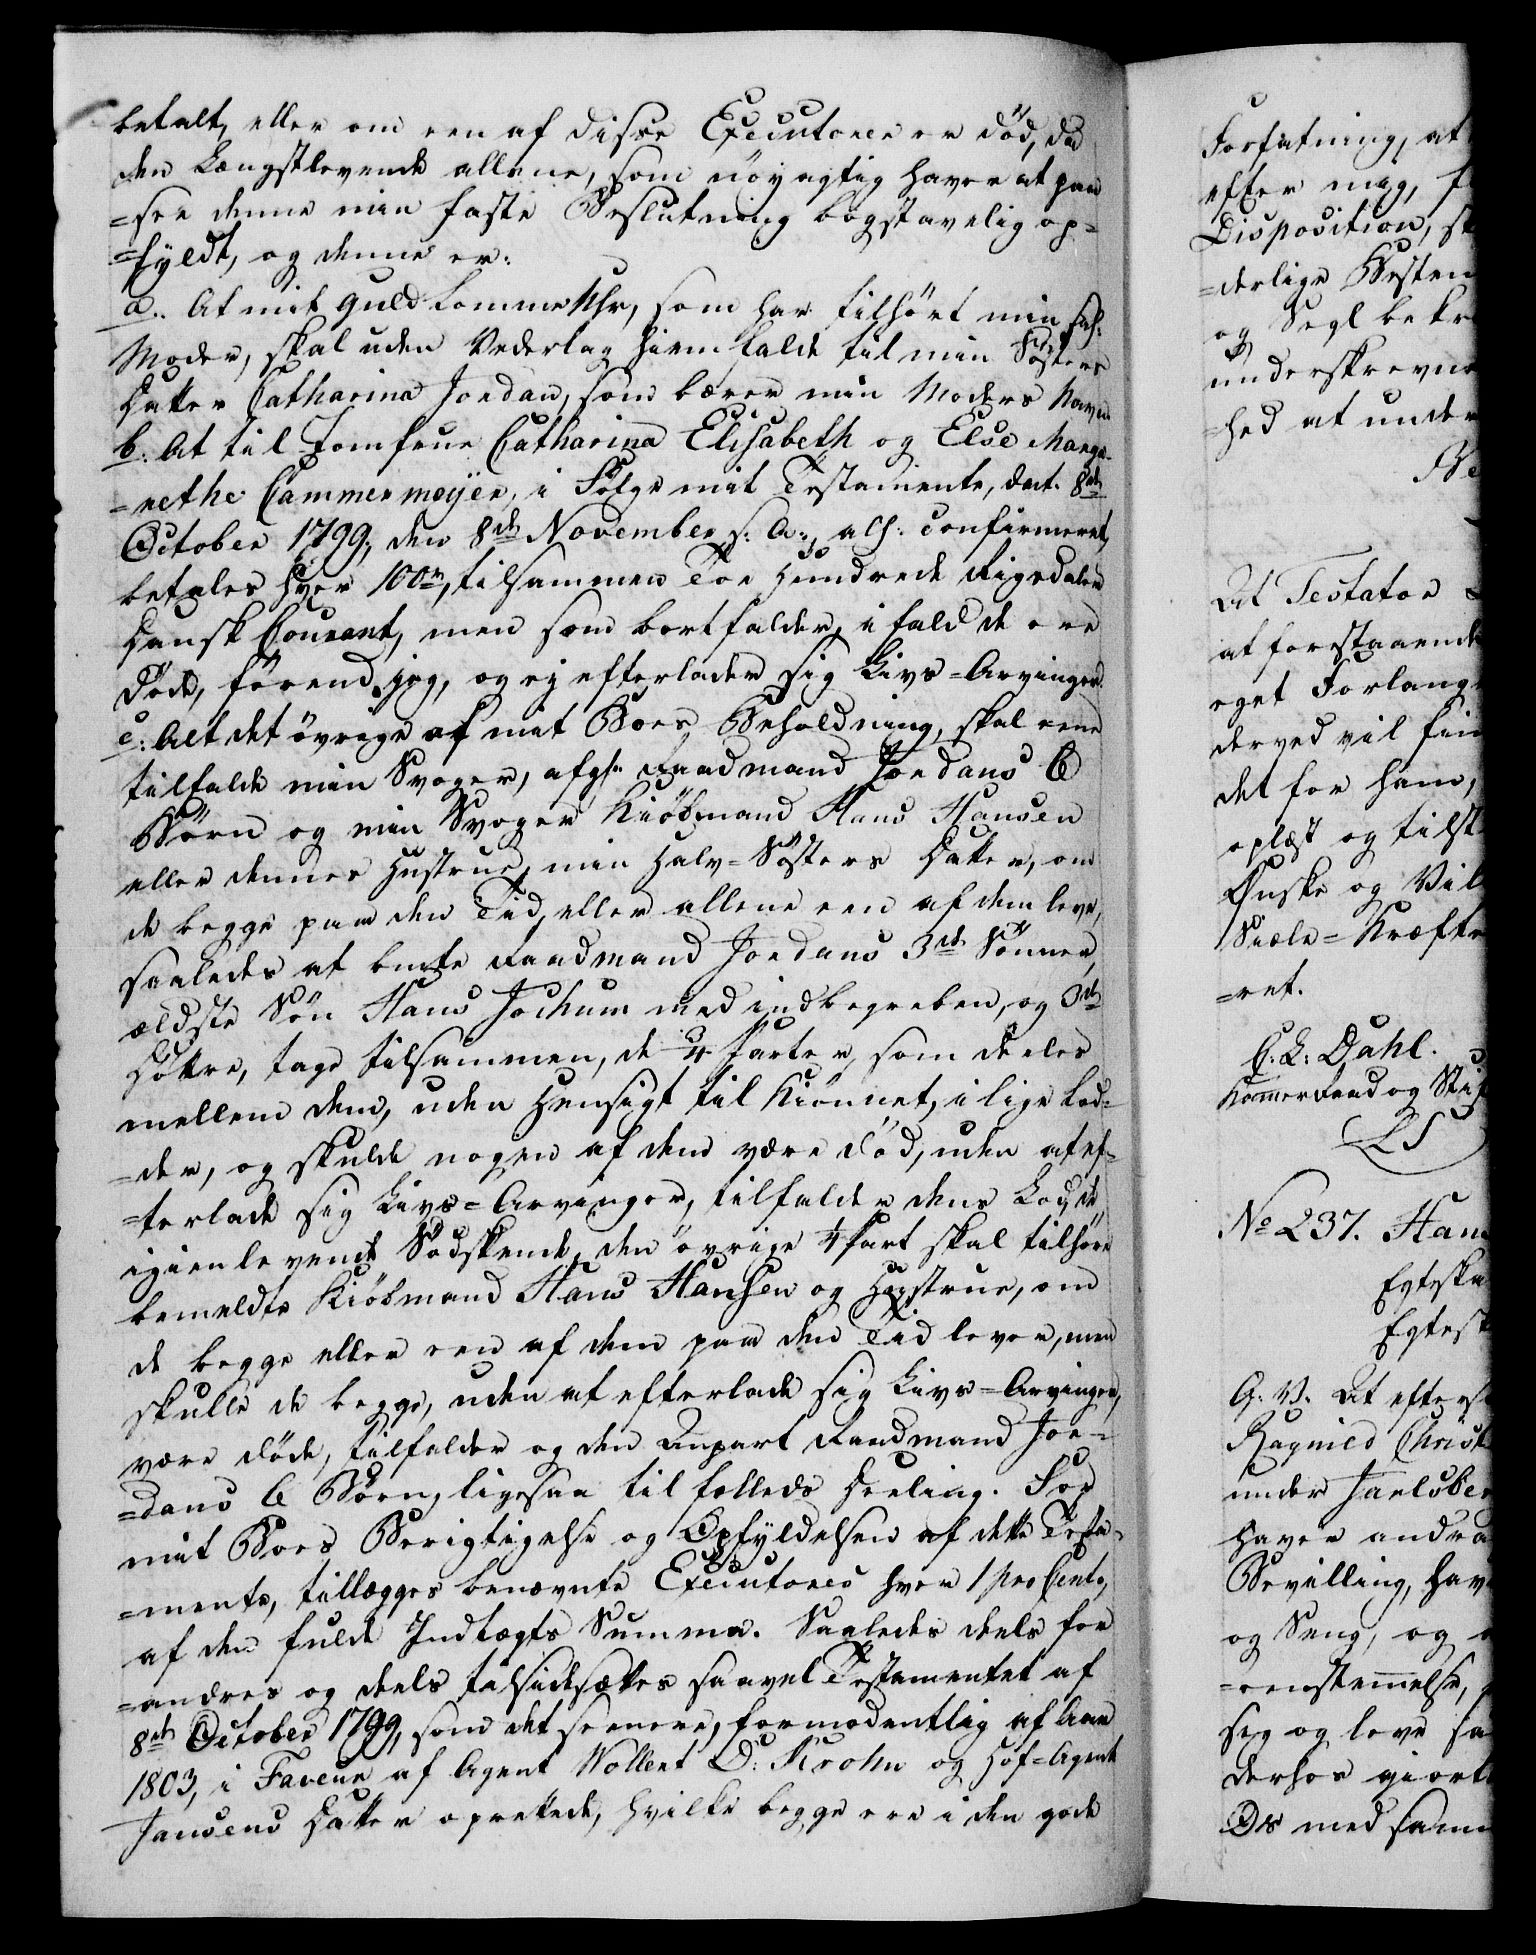 betalt, eller om een af disse Executorer er død, da
den Længstlevende allene, som nöyagtig haver at paa
=see denne min faste Beslutning bogstavelig op=
=fyldt, og denne er:
a.. At mit Guld Lomme Uhr, som har tilhørt min sal:
Moder, skal uden Vederlag hiemfalde til min Søsters
Datter Catharina Jordan, som bærer min Moders Navn
b: At til Jomfrue Catharina Elisabeth og Else Marga-
=rethe Cammermeÿer, i Følge mit Testamente, dat. 8de
October 1799, den 8de November s: A:, allr: confirmeret,
betales hver 100rd, tilsammen Toe Hundrede Rigsdaler
Dansk Courant, men som bortfalder, i fald de ere
døde, förend jeg, og ej efterlader sig Livs=Arvinger.
c: Alt det övrige af mit Boes Beholdning, skal eene
tilfalde min Svoger, afg: Raadmand Jordans 6
Børn og min Svoger Kiöbmand Hans Hansen
eller dennes Hustrue, min Halv=Søsters Datter, om
de begge paa den Tid, eller allene een af dem leve,
saaledes at bemte Raadmand Jordans 3de Sønner,
ældste Søn Hans Jochum med indbegreben, og 3de
Døttre, tage tilsammen, de 3/4 Parter, som deeles
mellem dem, uden Hensigt til Kiönnet, i lige Lod=
=der, og skulde nogen af dem være død, uden at ef=
=terlade sig Livs=Arvinger, tilfalder dens Lod, de
igienlevende Södskende, den övrige 1/4 Part skal tilhøre
bemeldte Kiöbmand Hans Hansen og Hustrue, om
de begge eller een af dem paa den Tid lever, men
skulle de begge, uden at efterlade sig Livs=Arvinger,
være døde, tilfalder og den Anpart Raadmand Jor=
=dans 6 Børn, ligesaa til fælleds Deeling. For
mit Boes Berigtigelse og Opfyldelsen af dette Testa-
=mente, tillægges benævnte Executores hver 1 pro Cento,
af den fulde Indtægts Summa. Saaledes deels for
=andres og deels tilsidesættes saavel Testamentet af
8de October 1799, som det seenere, formodentlig af Aar
1803, i Faveur af Agent Wollert D: Krohn og Hof=Agent
Jansens Datter oprettede, hvilke begge ere i den gode
Forfatning, at
efter mig, f
Disposition, sk
=derlige Besten
og Segl bekr
underskrevne
=hed at under
Be
At Testator
at forestaaende
eget Forlang
derved vil fin
det for ham,
oplæst og tilst
Ønske og Vil
Siæle=Kræfte
=ret.
C: L: Dahl.
Kammerraad og Stif
LS
No 237. Hans
Egteska
Egtesk
G: V: At eftersom
Ragnild Christ
under Jarlsber
haver andra
Bevilling, hav
og Seng, og
=eenstemmelse,
sig og leve sa
derhos giort
Os med samm